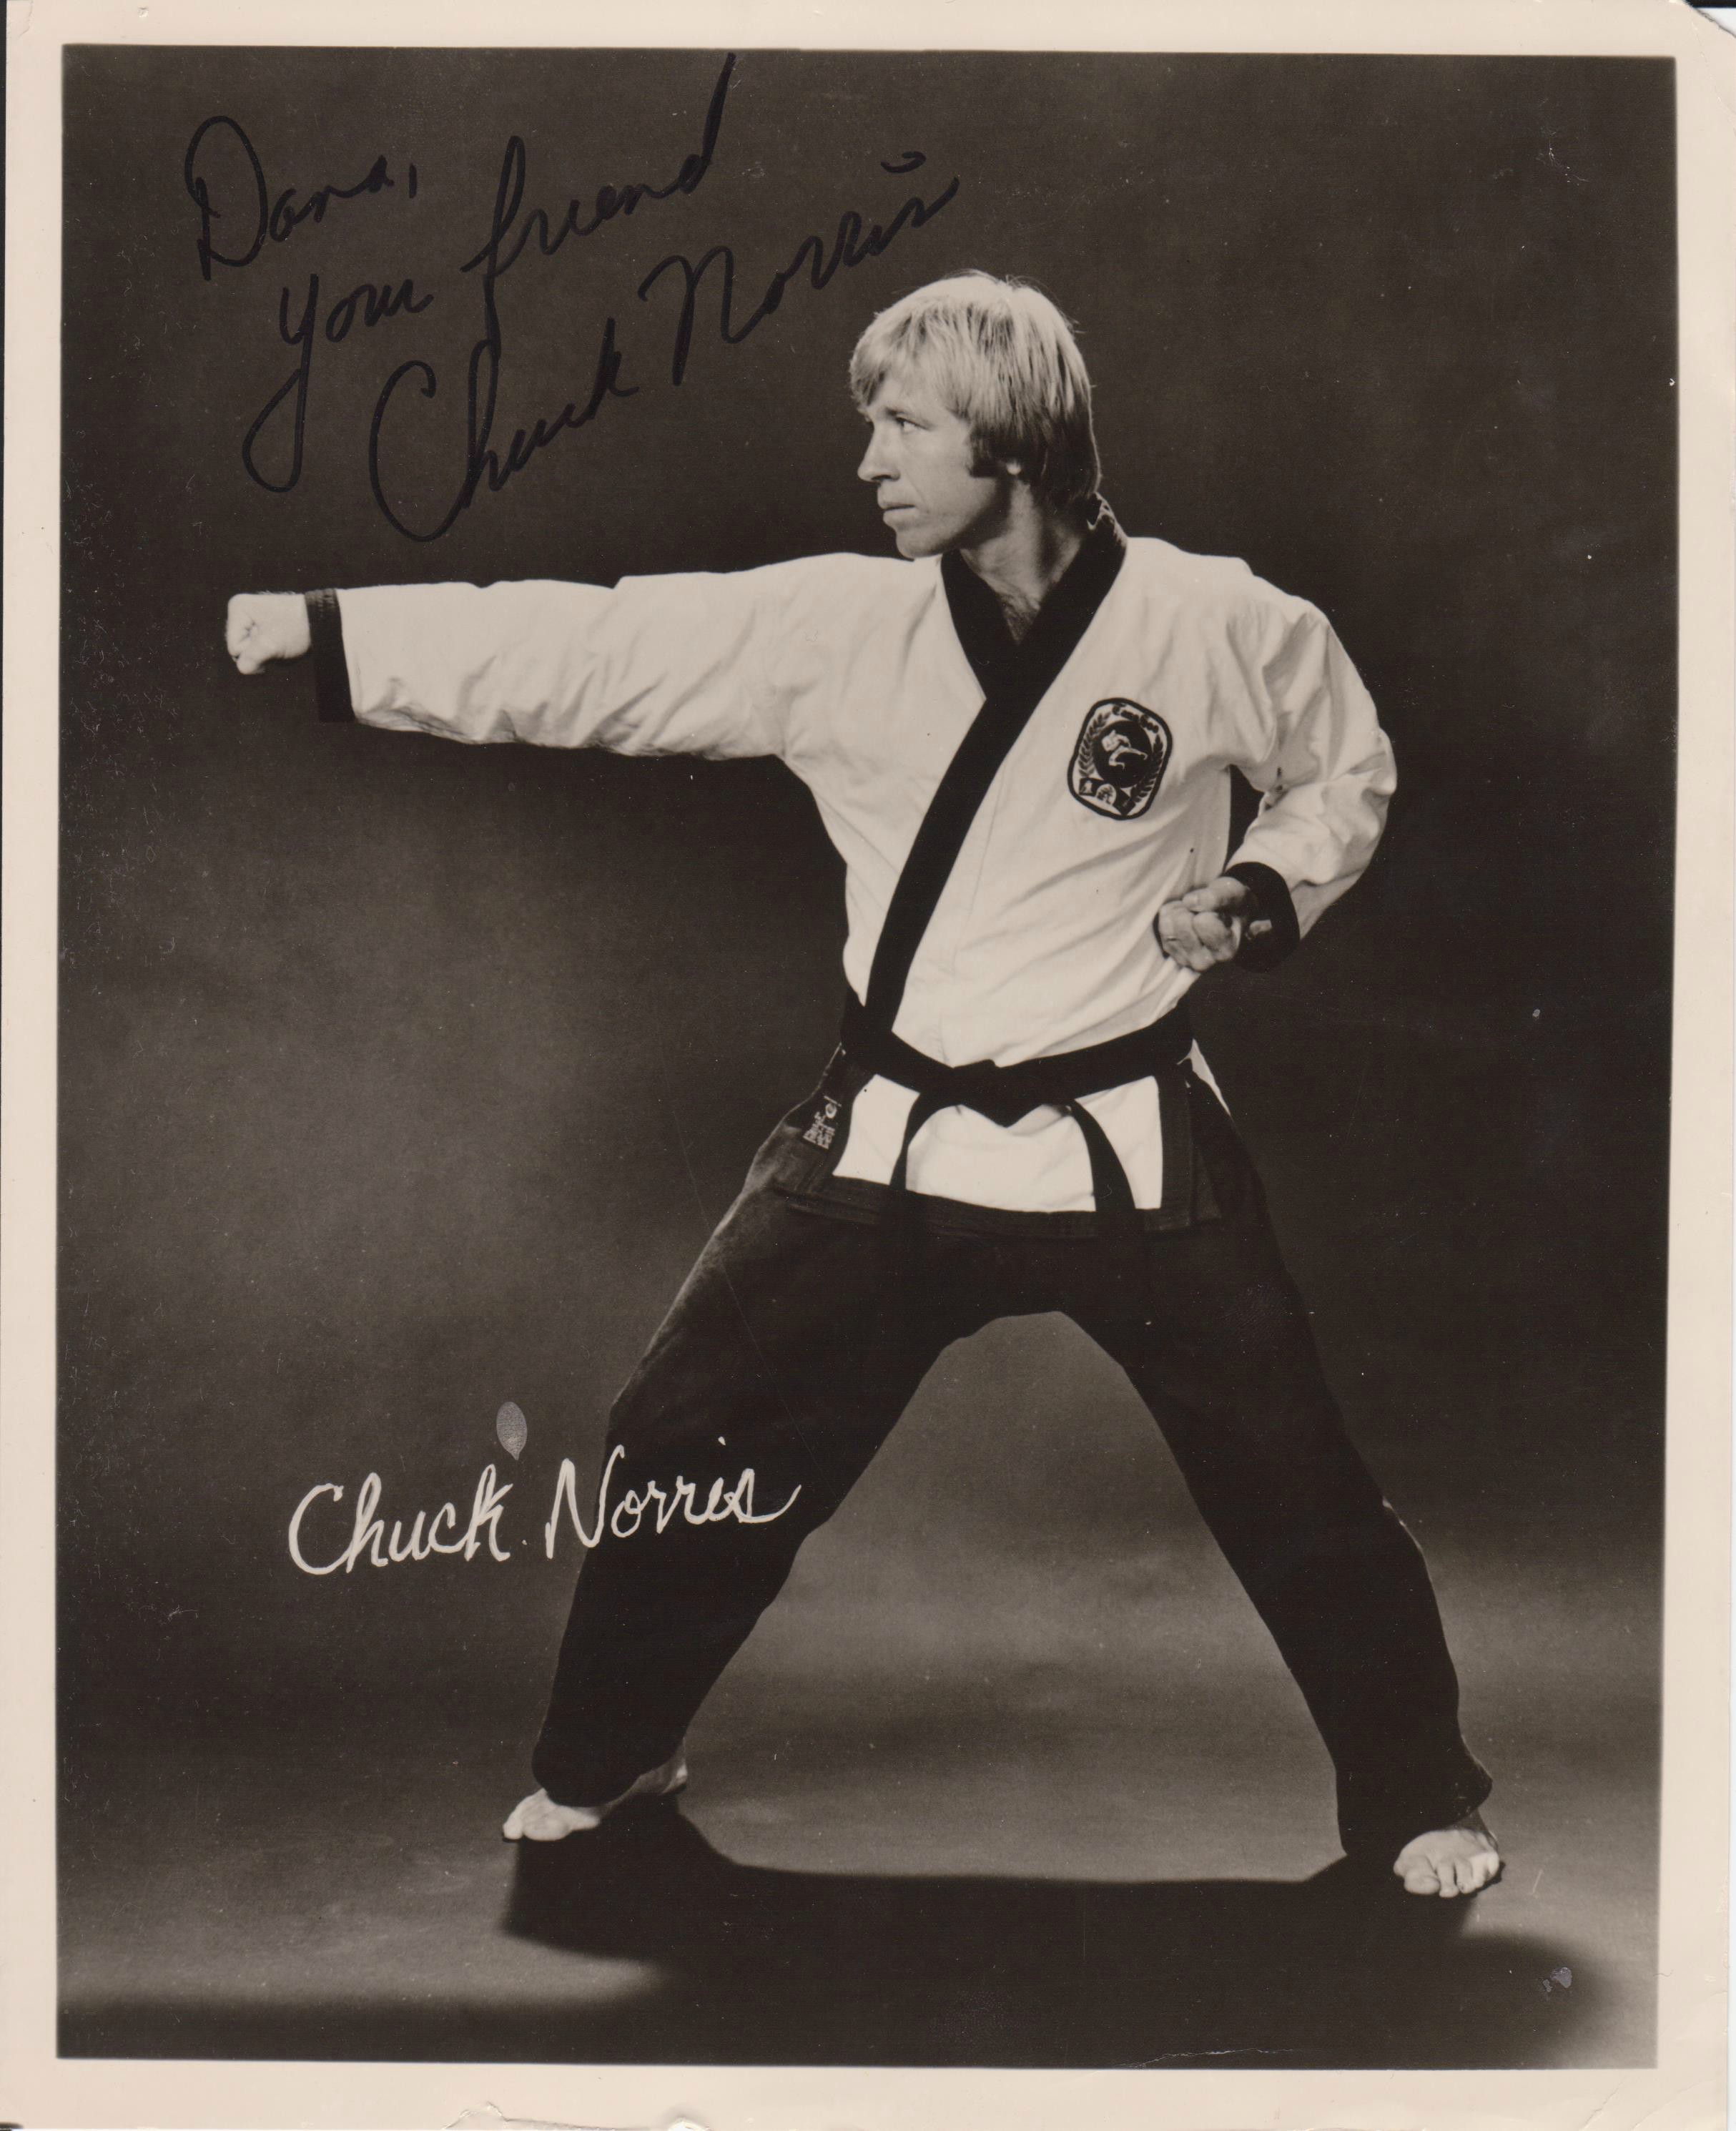 Dana,
your friend
Chuck Norris
Chuck Norris